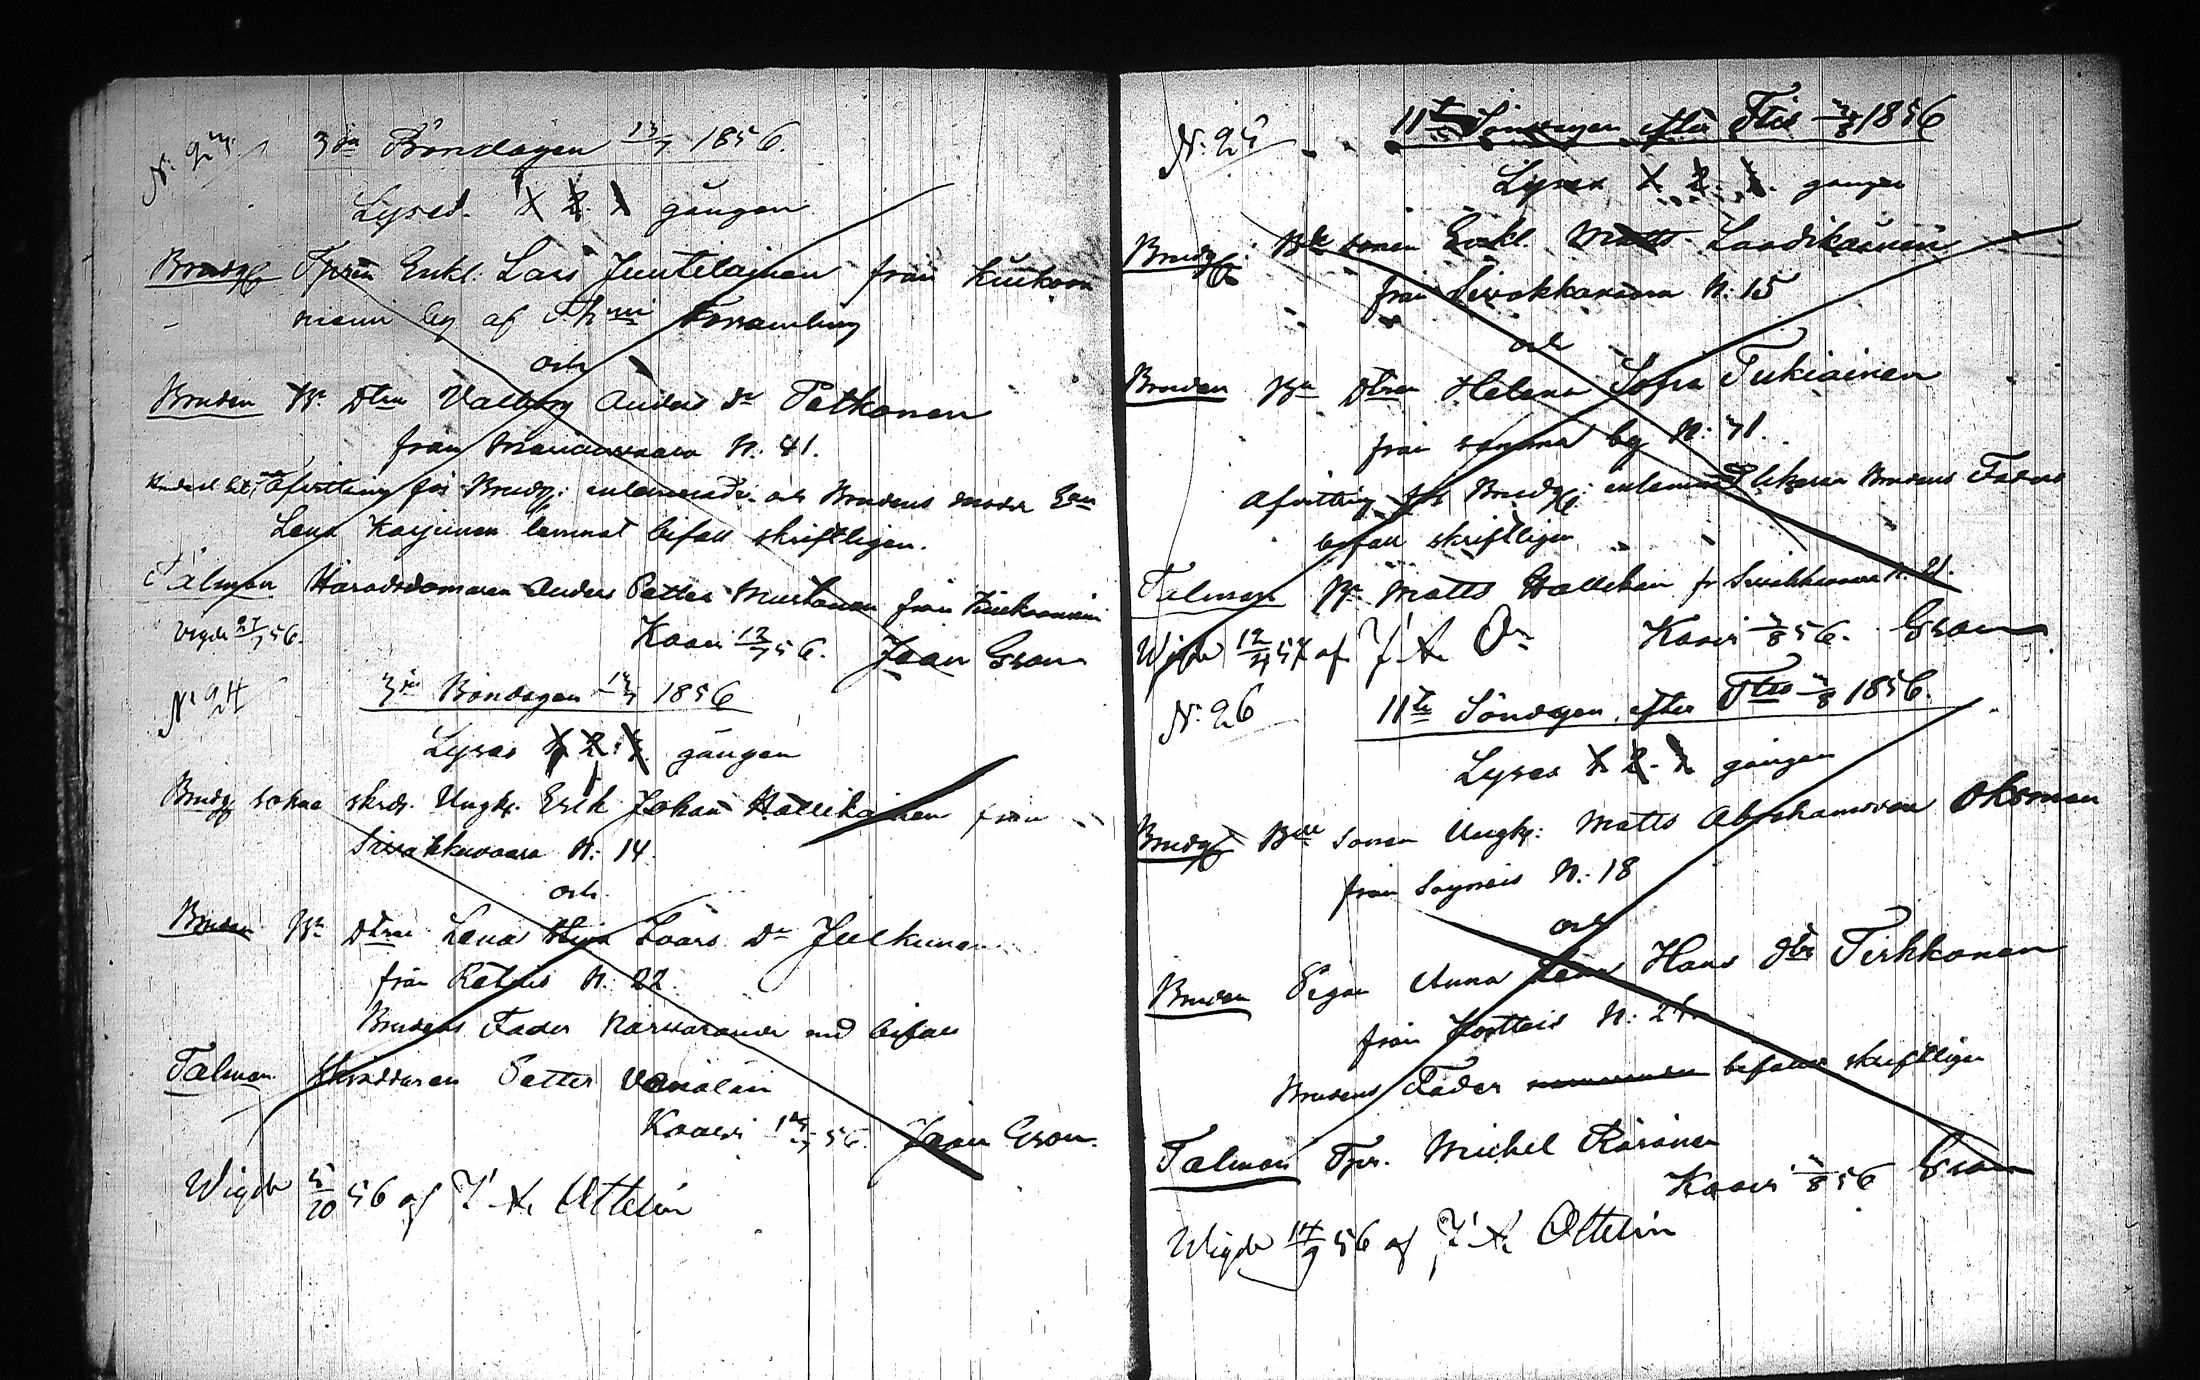 N: 23.
3dn Böndagen 13/7 1856.
Lyses. 1 2 1 gången
Brudg Tpren Enkl: Lars Juntilainen från Kuikoon
niemi by af Församling
och
Bruden Bn Dtren Valborg Anders dr Petkonen
från Maarianvaara N: 41.
Afvittring för Brudg: inlemnades och Brudens moder Enn
Lena Karjunen lemnat bifall skriftligen.
Talman Häradsdomaren Anders Petter Mustonen från
Vigde 27/7 56.
Kaavi 13/7 56. Johan Gron
N: 24
3dn Böndagen 13/7 1856
Lyses 1 2 1 gången
Brudg sokne skrdr. Ungk. Erik Johan Hallikainen från
Sivakkavaara N: 14.
och
Bruden Bn Dtren Lena Stina Lars Dr Julkunen
från Retunis N: 22.
Brudens Fader Närvarande med bifall
Talman Skräddaren Petter
Kaavi 13/7 56. Johan Gron.
Wigde 5/10 56 af J. A. Ottelin
N: 25
11te Söndagen efter Ttis 3/8 1856
Lyses 1 2. 1. gången
Brudg: Bde sonen Enkl. Matts
från Sivakkavaara N: 15
och
Bruden Bn Dtren Helena Sofia Tukiainen
från samma by N: 71.
Afvittring för Brudg: inlemnad likasom Brudens Faders
bifall skriftligen
Talman Bn Matts Hallikain fr Sivakkavaara N: 21.
Wigde 12/4 57 af J. A. On
Kaavi 3/8 56. Gron
N: 26
11te Söndagen efter Ttis 3/8 1856.
Lyses 1 2. 1 gången
Brudg Bde sonen Ungk: Matts Abrahamsson Oksman
från Säyneis N: 18
och
Bruden Pigan Anna Lena Hans dtr Tirkkonen
från Kortteis N: 24.
Brudens Fader narvarande bifaller skriftligen
Talman Tpr. Michel Räsänen
Kaavi 3/8 56 Gron
Wigde 14/9 56 af J. A. Ottelin